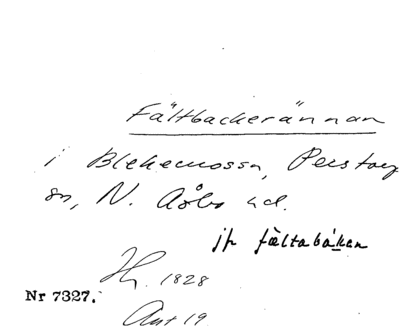 Fältbackerännan
i Blekemossen, Perstorp
sn, N. Åsbo hd.
jfr fæltabákan
Hr. 1828
Nr 7327.
Ant 19